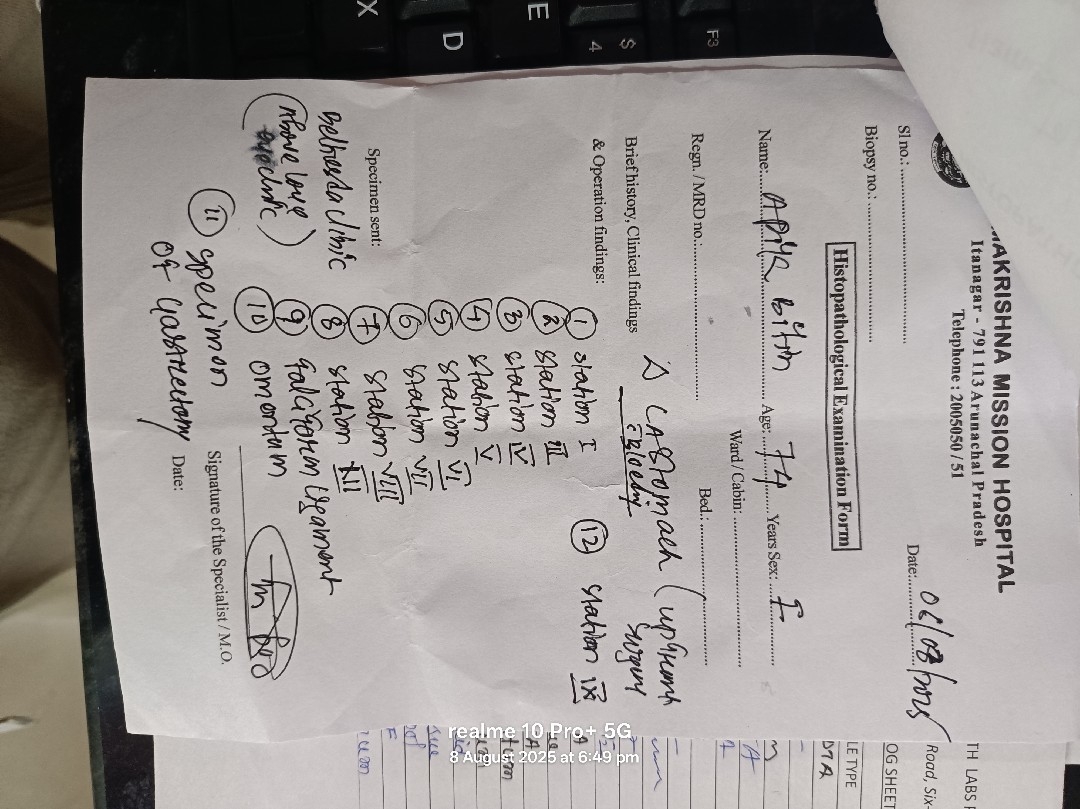 AKRISHNA MISSION HOSPITAL
Itanagar - 791 113 Arunachal Pradesh
Telephone : 2005050 / 51
Sl no.:
Date:
Biopsy no.:
Histopathological Examination Form
Name: Age: 74 Years Sex: F
Regn. / MRD no.: Ward / Cabin: Bed.:
Brief history, Clinical findings
& Operation findings:
Δ CA Stomach (upfront
surgery
① station I
② station III
③ station IV
④ station V
⑤ station VI
⑥ station VII
⑦ station VIII
⑧ station
⑨ falciform ligament
⑩ omentum
⑪ specimen
of gastrectomy
⑫ station IX
Specimen sent:
Bethesda clinic
(Above
Signature of the Specialist / M.O.
Date:
TH LABS
Road, Six-
OG SHEET
LE TYPE
F3
$
4
E
D
X
realme 10 Pro+ 5G
8 August 2025 at 6:49 pm